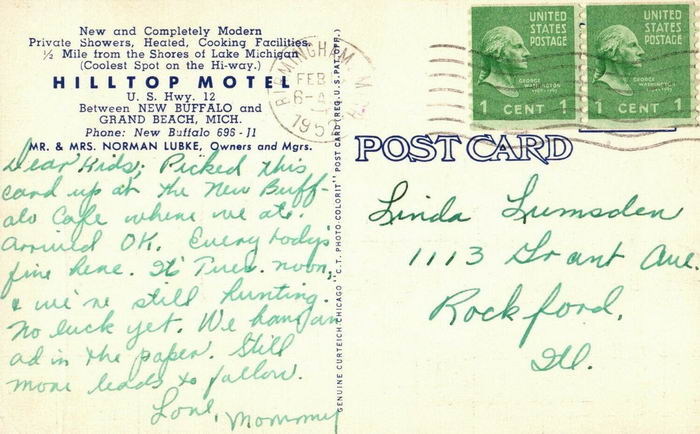 New and Completely Modern
Private Showers, Heated, Cooking Facilities.
½ Mile from the Shores of Lake Michigan
(Coolest Spot on the Hi-way.)
HILLTOP MOTEL
U. S. Hwy. 12
Between NEW BUFFALO and
GRAND BEACH, MICH.
Phone: New Buffalo 696 - J1
MR. & MRS. NORMAN LUBKE, Owners and Mgrs.
Dear Kids; Picked this
card up at the New Buff-
alo Cafe where we ate.
Arrived OK. Everybody's
fine here. It's Tues. noon,
& we're still hunting.
No luck yet. We have an
ad in the paper. Still
more leads to follow.
Love, Mommy
GENUINE CURTEICH-CHICAGO "C.T. PHOTO-COLORIT" POST CARD (REG. U.S. PAT. OFF.)
BIRMINGHAM
FEB
6-
195
UNITED
STATES
POSTAGE
GEORGE
WASHINGTON
1 CENT 1
UNITED
STATES
POSTAGE
GEORGE
WASHINGTON
1 CENT 1
POST CARD
Linda Lumsden
1113 Grant Ave.
Rockford,
Ill.